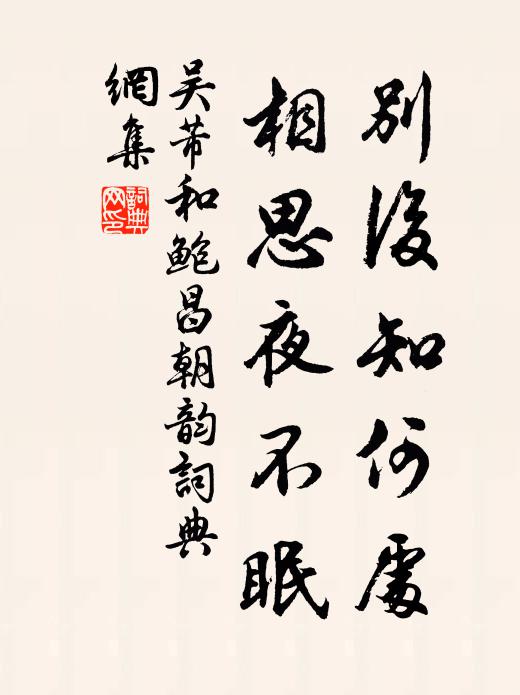 別後知何處
相思夜不眠
吳芾和鮑昌朝韵詞典
網集
詞典網印